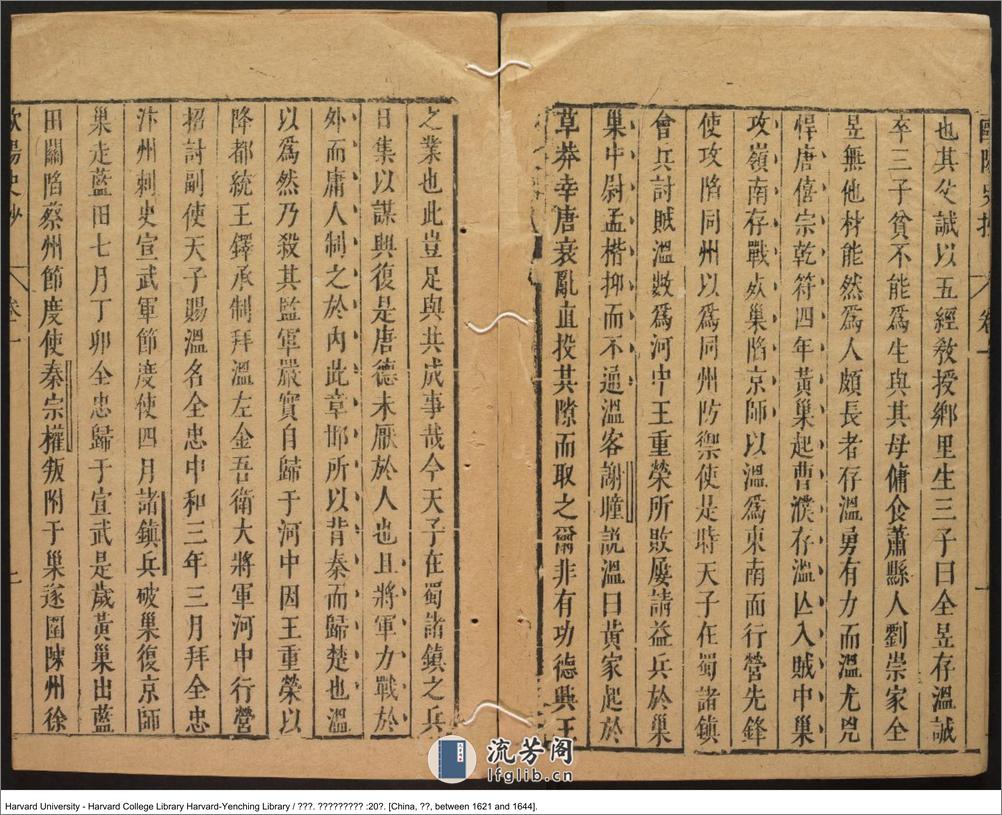 歐陽史抄 卷一
也其父誠以五經教授鄉里生三子曰全昱存溫誠
卒三子貧不能為生與其母傭食蕭縣人劉崇家全
昱無他材能然為人頗長者存溫勇有力而溫尤兇
悍唐僖宗乾符四年黃巢起曹濮存溫亾入賊中巢
攻嶺南存戰死巢陷京師以溫為東南面行營先鋒
使攻陷同州以為同州防禦使是時天子在蜀諸鎮
會兵討賊溫數為河中王重榮所敗屢請益兵於巢
巢中尉孟楷抑而不通溫客謝瞳説溫曰黃家起於
草莽幸唐衰亂直投其隙而取之爾非有功德興王
之業也此豈足與共成事哉今天子在蜀諸鎮之兵
日集以謀興復是唐德未厭於人也且將軍力戰於
外而庸人制之於內此章邯所以背秦而歸楚也溫
以為然乃殺其監軍嚴實自歸于河中因王重榮以
降都統王鐸承制拜溫左金吾衛大將軍河中行營
招討副使天子賜溫名全忠中和三年三月拜全忠
汴州刺史宣武軍節度使四月諸鎮兵破巢復京師
巢走藍田七月丁卯全忠歸于宣武是歲黃巢出藍
田關陷蔡州節度使秦宗權叛附于巢遂圍陳州徐
歐陽史抄 卷一 二
流芳阁
lfglib.cn
Harvard University - Harvard College Library Harvard-Yenching Library / ???. ????????? :20?. [China, ??, between 1621 and 1644].